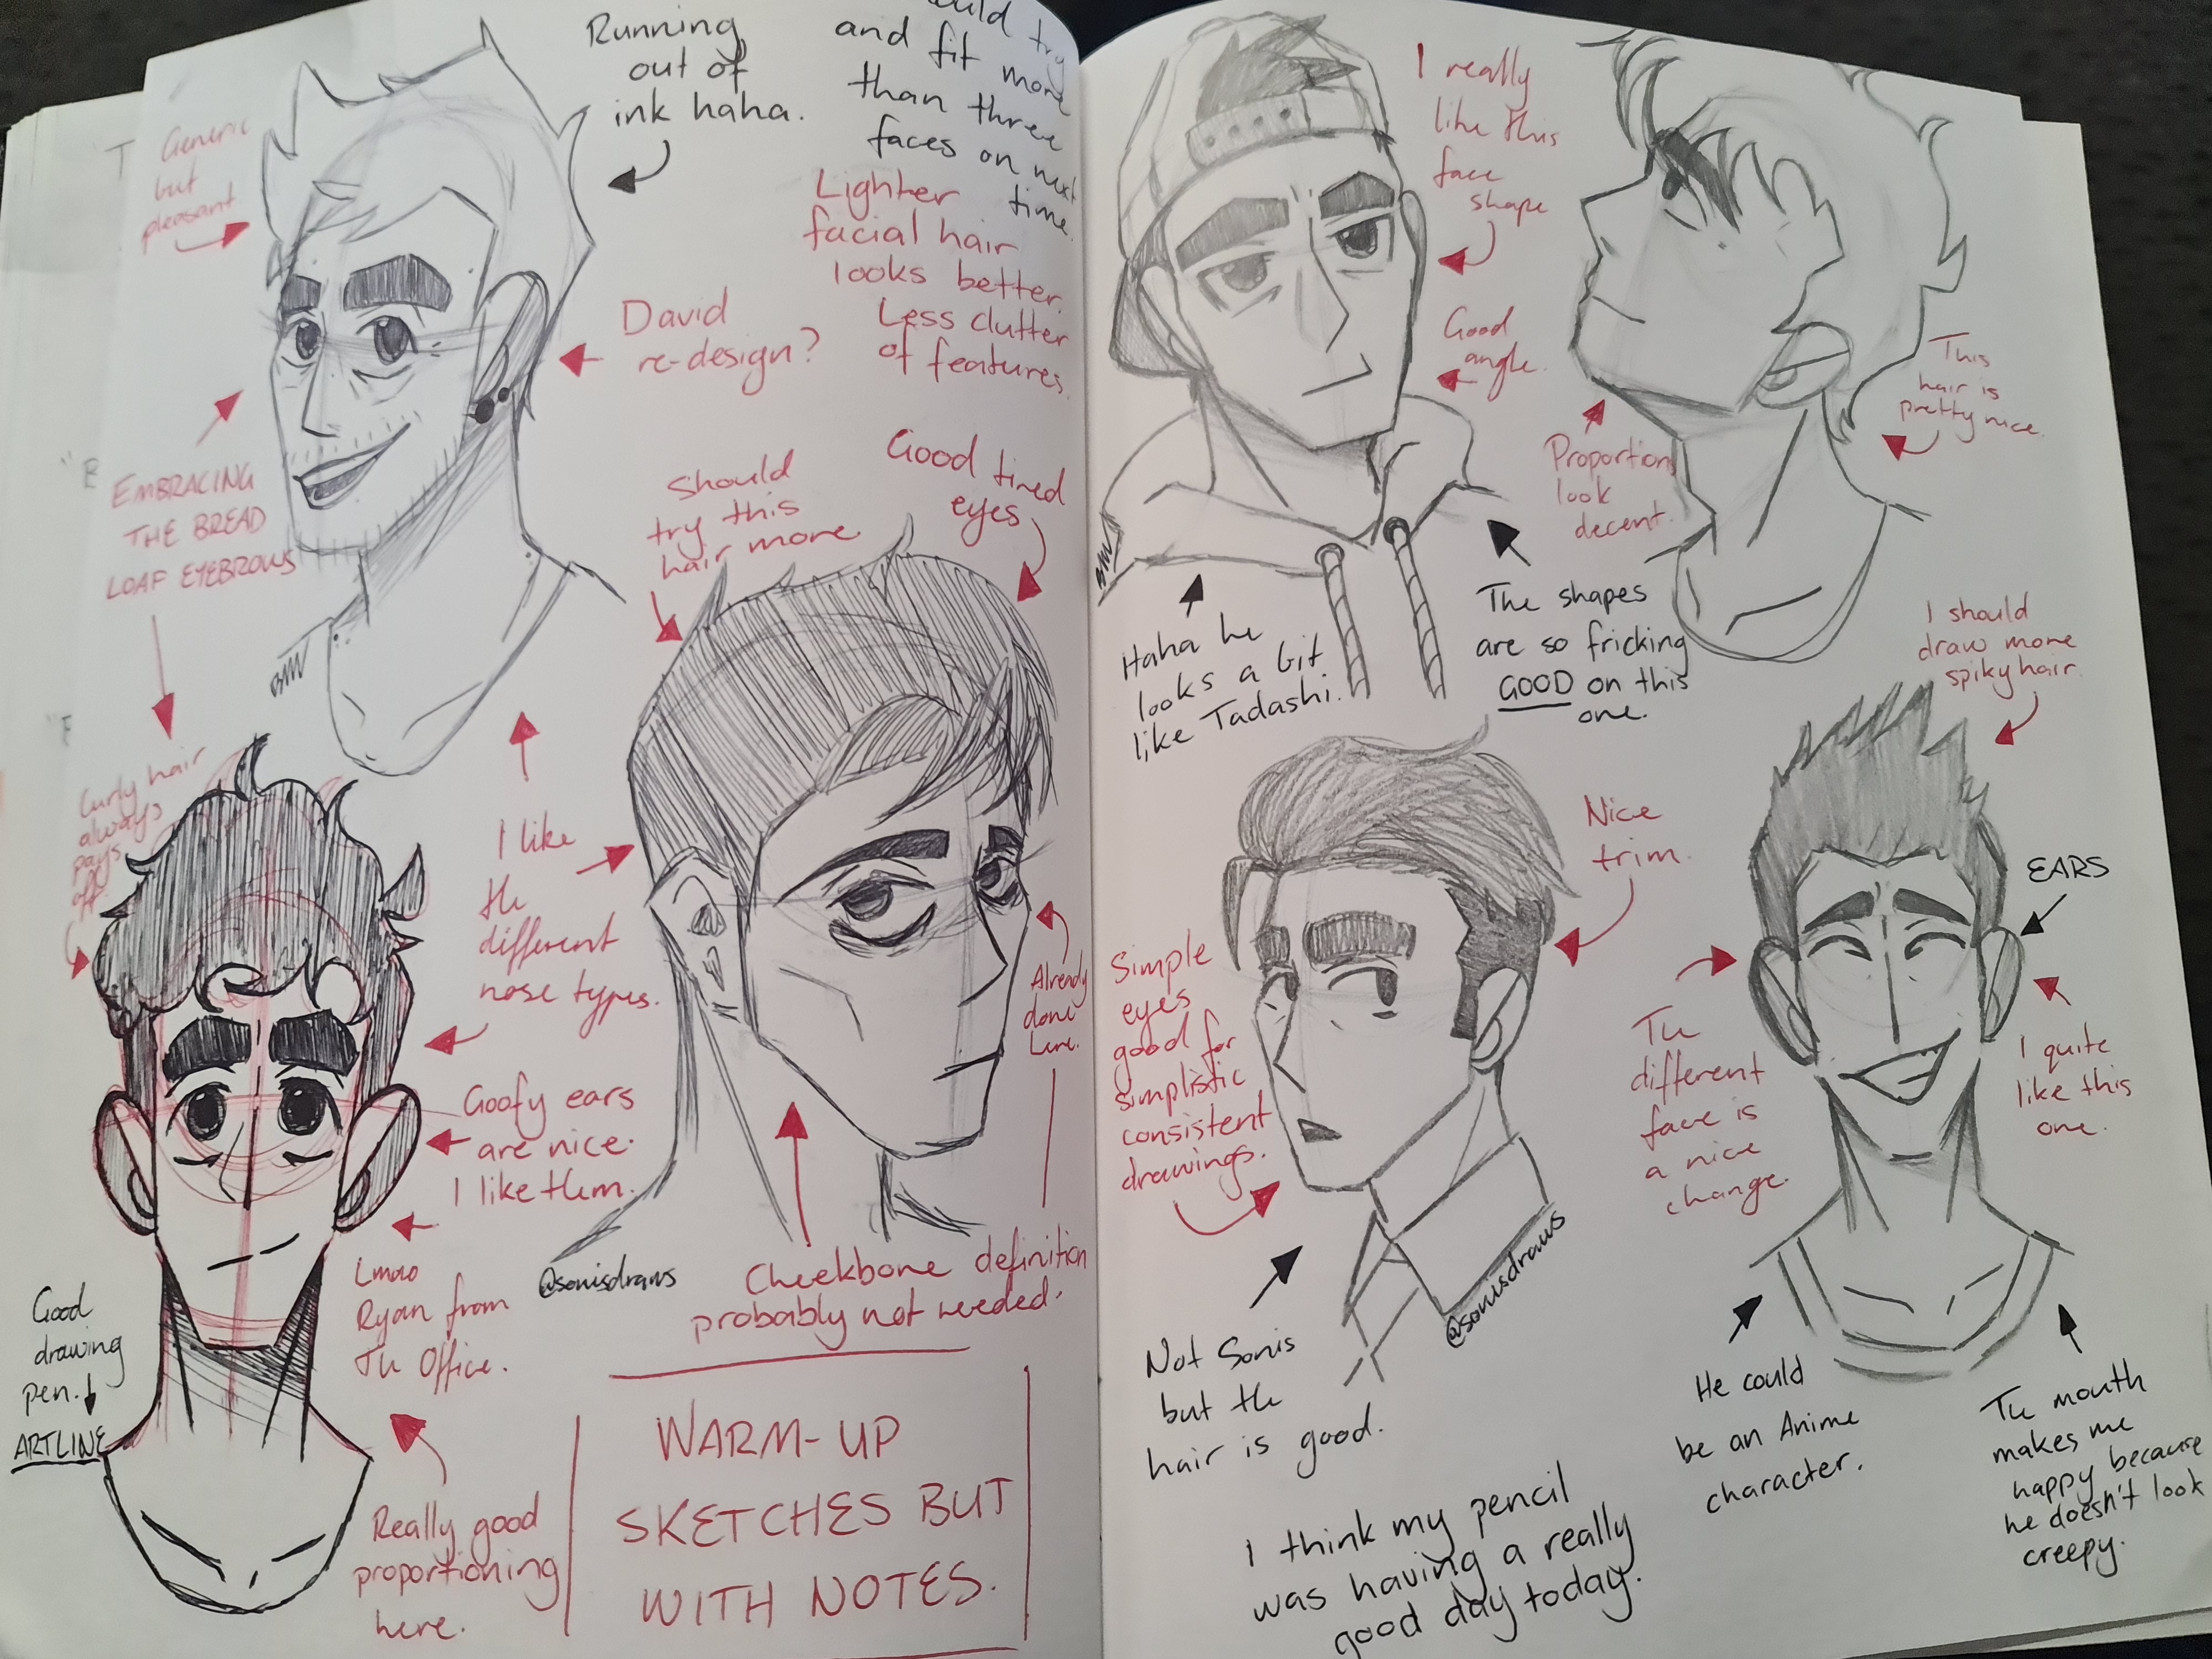 Generic
but
pleasant.
Running
out of
ink haha.
try
and fit more
than three
faces on next
time.
Lighter
facial hair
looks better.
Less clutter
of features.
David
re-design?
EMBRACING
THE BREAD
LOAF EYEBROWS
Should
try this
hair more.
Good tired
eyes
BMW
Curly hair
always
pays
off.
I like
the
different
nose types.
Already
done
here.
Goofy ears
are nice.
I like them.
Lmao
Ryan from
The Office.
@sonisdraws
Cheekbone definition
probably not needed.
Good
drawing
pen.
ARTLINE
Really good
proportioning
here.
WARM-UP
SKETCHES BUT
WITH NOTES.
I really
like this
face
shape
Good
angle.
Proportions
look
decent.
This
hair is
pretty nice.
BMW
Haha he
looks a bit
like Tadashi.
The shapes
are so fricking
GOOD on this
one.
I should
draw more
spiky hair.
Nice
trim.
EARS
Simple
eyes
good for
simplistic
consistent
drawings.
The
different
face is
a nice
change.
I quite
like this
one.
@sonisdraws
Not Sonis
but the
hair is good.
He could
be an Anime
character.
The mouth
makes me
happy because
he doesn't look
creepy.
I think my pencil
was having a really
good day today.